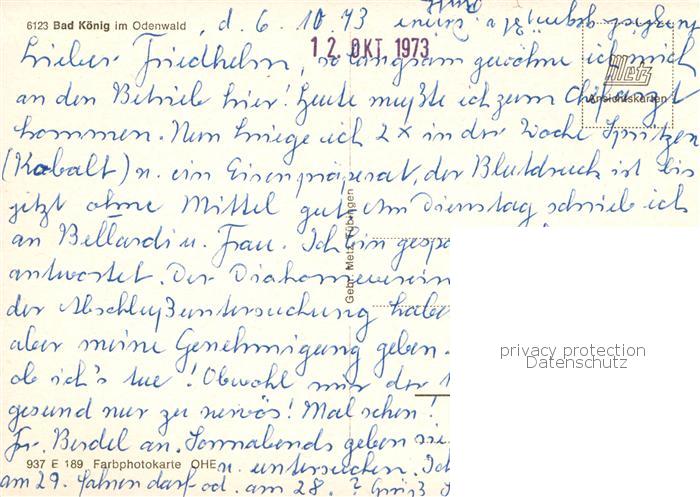 6123 Bad König im Odenwald , d. 6. 10. 73
12. OKT 1973
Lieber Friedhelm, so langsam gewöhne ich mich
Metz
Ansichtskarten
an den Betrieb hier! Heute mußte ich zum Chefarzt
kommen. Nun kriege ich 2x in der Woche Spritzen
(Kobalt) u. ein Eisenpräparat, der Blutdruck ist bis
jetzt ohne Mittel gut. Am Dienstag schrieb ich
an Bellardi u. Frau. Ich bin gespa
antwortet. Der Diakonieverein
der Abschlußuntersuchung habe
aber meine Genehmigung geben.
ob ich's tue! Obwohl mir der
gesund nur zu nervös! Mal sehen!
Fr. Berdel an. Sonnabends geben sie
937 E 189 Farbphotokarte OHE
u. untersuchen. Ich
am 29. fahren darf od. am 28. ? Gruß
Gebr. Metz, Tübingen
privacy protection
Datenschutz